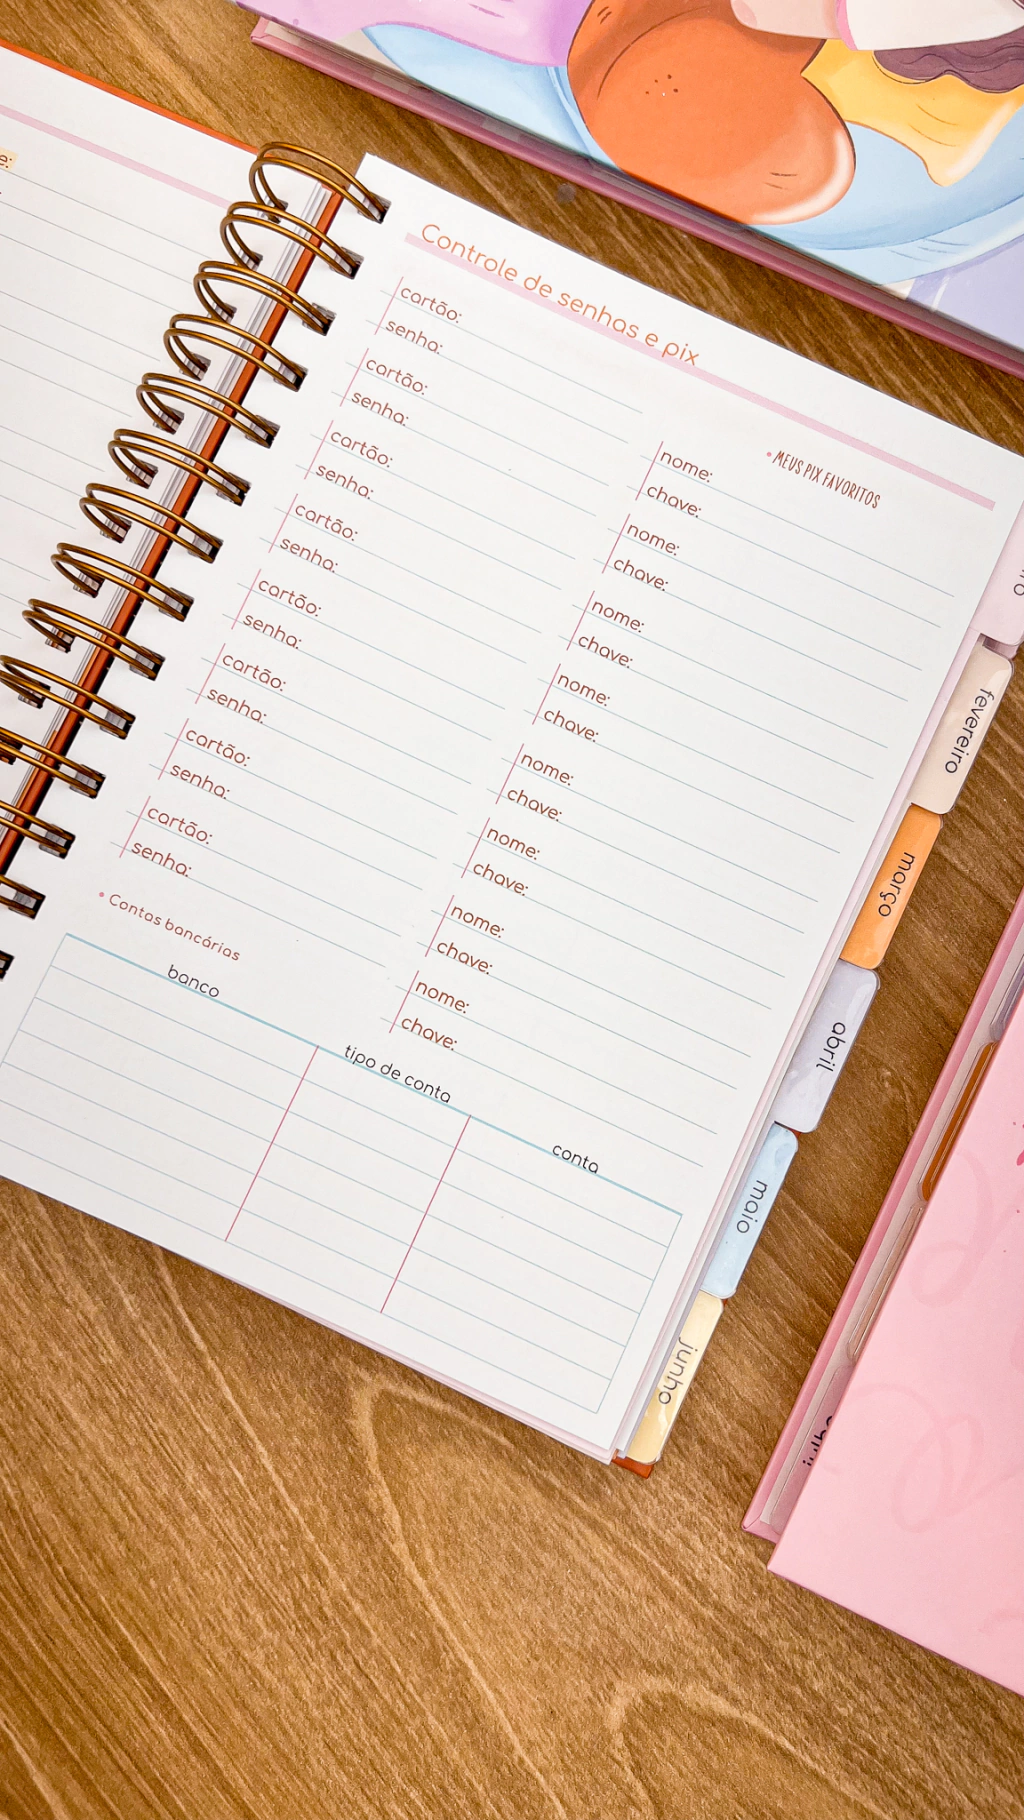 Controle de senhas e pix
cartão:
senha:
cartão:
senha:
cartão:
senha:
cartão:
senha:
cartão:
senha:
cartão:
senha:
cartão:
senha:
cartão:
senha:
• MEUS PIX FAVORITOS
nome:
chave:
nome:
chave:
nome:
chave:
nome:
chave:
nome:
chave:
nome:
chave:
nome:
chave:
nome:
chave:
• Contas bancárias
banco
tipo de conta
conta
fevereiro
março
abril
maio
junho